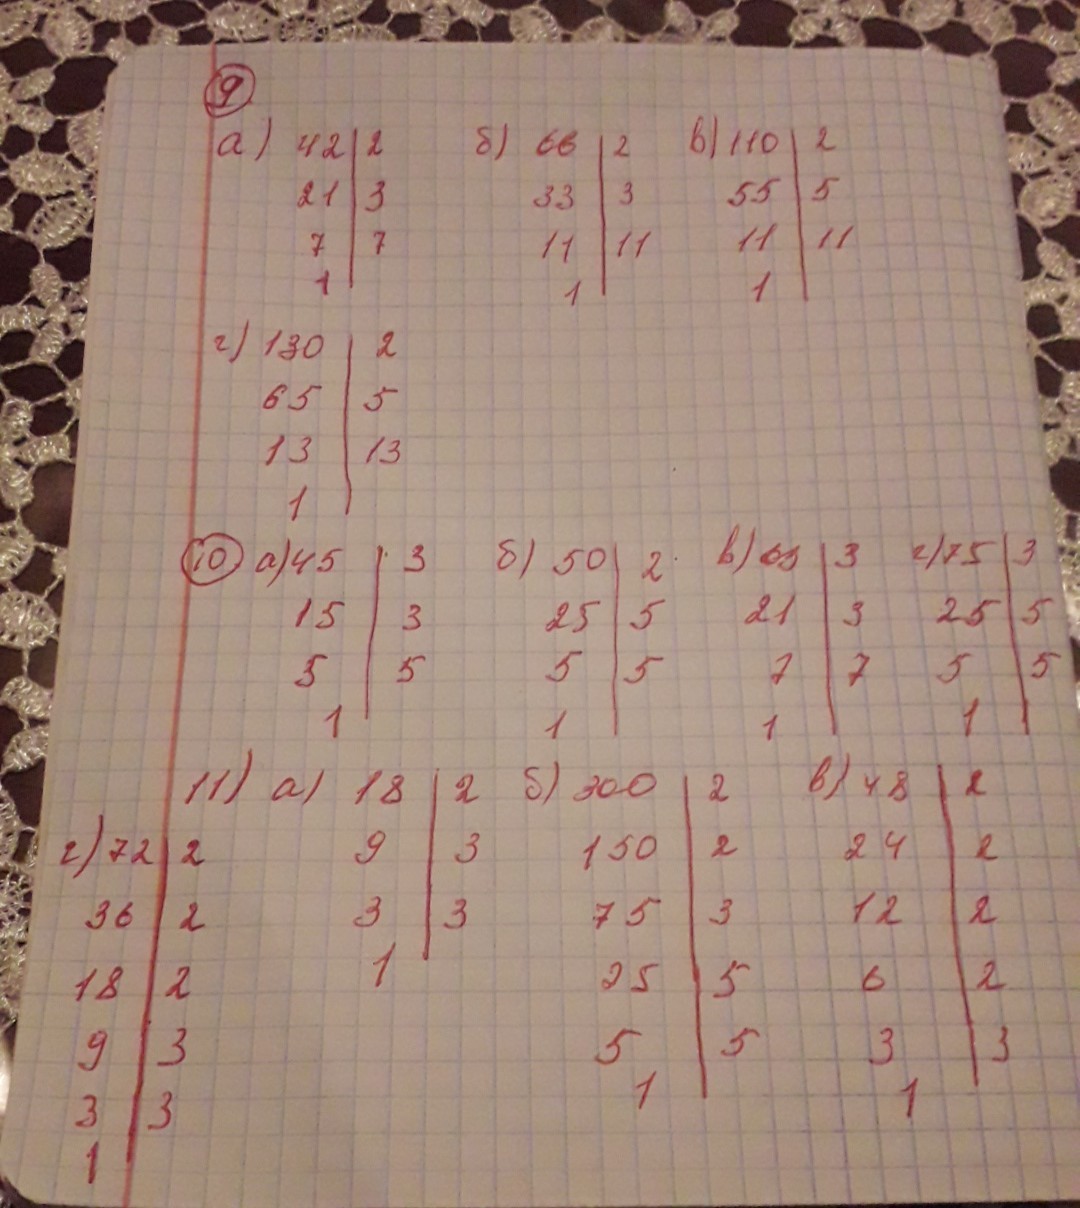 9
а) 42 | 2 б) 66 | 2 в) 110 | 2
21 | 3 33 | 3 55 | 5
7 | 7 11 | 11 11 | 11
1 1 1
г) 130 | 2
65 | 5
13 | 13
1
10 а) 45 | 3 б) 50 | 2 в) 63 | 3 г) 75 | 3
15 | 3 25 | 5 21 | 3 25 | 5
5 | 5 5 | 5 7 | 7 5 | 5
1 1 1 1
11) а) 18 | 2 б) 300 | 2 в) 48 | 2
г) 72 | 2 9 | 3 150 | 2 24 | 2
36 | 2 3 | 3 75 | 3 12 | 2
18 | 2 1 25 | 5 6 | 2
9 | 3 5 | 5 3 | 3
3 | 3 1 1
1